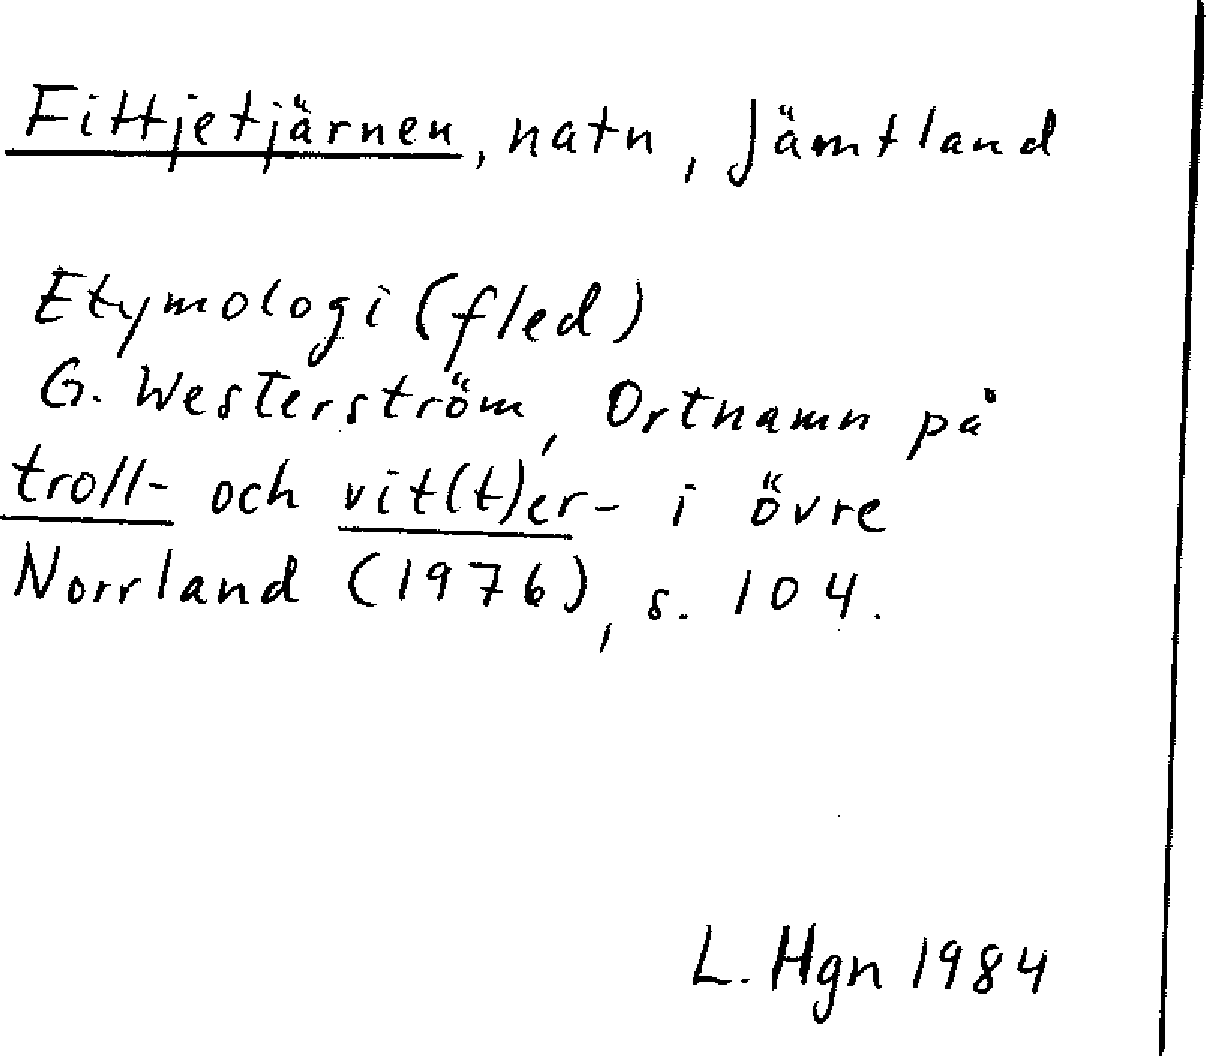 Fittjetjärnen, natn, Jämtland
Etymologi (fled)
G. Westerström, Ortnamn på
troll- och vit(t)er- i övre
Norrland (1976), s. 104.
L. Hgn 1984